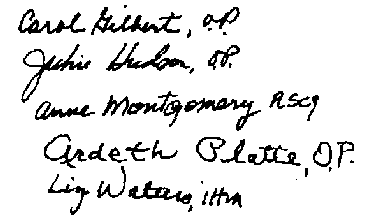 Carol Gilbert, O.P.
Jackie Hudson, O.P.
Anne Montgomery RSCJ
Ardeth Platte, O.P.
Liz Waters, IHM